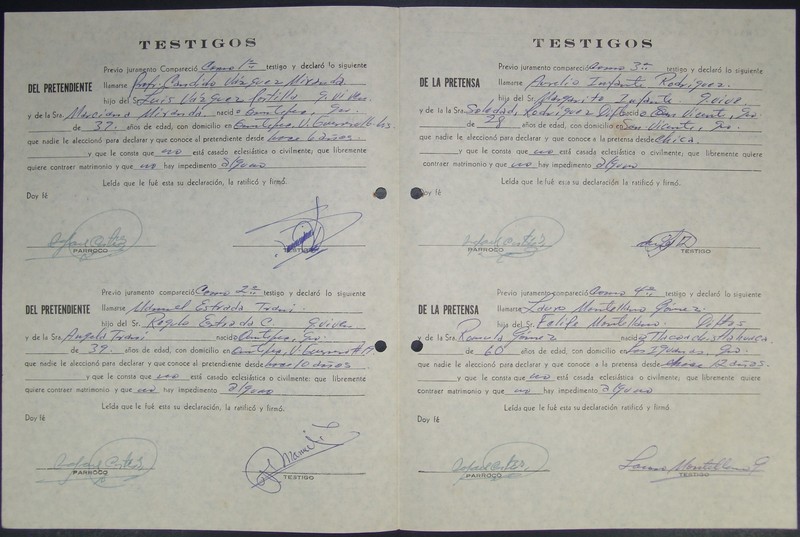 TESTIGOS
Previo juramento Compareció Como 1er testigo y declaró lo siguiente
DEL PRETENDIENTE llamarse Profr. Candido Vázquez Miranda
hijo del Sr. Luis Vázquez Portillo q. viven
y de la Sra. Marciana Miranda nació Gro.
de 37 años de edad, con domicilio en
que nadie le aleccionó para declarar y que conoce al pretendiente desde hace 6 años
y que le consta que no está casado eclesiástica o civilmente; que libremente
quiere contraer matrimonio y que no hay impedimento alguno
Leída que le fué esta su declaración, la ratificó y firmó.
Doy fé
Rafael Cortés
PARROCO
TESTIGO
Previo juramento compareció Como 2o testigo y declaró lo siguiente
DEL PRETENDIENTE llamarse Manuel Estrada
hijo del Sr. Estrada C. q. viven
y de la Sra. Angela nació Gro.
de 39 años de edad, con domicilio en V. Guerrero # 19
que nadie le aleccionó para declarar y que conoce al pretendiente desde hace 10 años
y que le consta que no está casado eclesiástica o civilmente; que libremente
quiere contraer matrimonio y que no hay impedimento alguno
Leída que le fué esta su declaración, la ratificó y firmó.
Doy fé
Rafael Cortés
PARROCO
TESTIGO
TESTIGOS
Previo juramento compareció Como 3er testigo y declaró lo siguiente
DE LA PRETENSA llamarse Aurelio Infante Rodríguez
hija del Sr. Margarito Infante q. vive
y de la Sra. Soledad Rodríguez Dif. nació en San Vicente, Gro.
de 28 años de edad, con domicilio en San Vicente, Gro.
que nadie le aleccionó para declarar y que conoce a la pretensa desde chica.
y que le consta que no está casada eclesiástica o civilmente; que libremente quiere
contraer matrimonio y que no hay impedimento alguno
Leída que le fué esta su declaración, la ratificó y firmó.
Doy fé
Rafael Cortés
PARROCO
TESTIGO
Previo juramento compareció Como 4o testigo y declaró lo siguiente
DE LA PRETENSA llamarse Lauro Montellano Gómez
hija del Sr. Felipe Montellano
y de la Sra. Gómez nació
de 60 años de edad, con domicilio en Gro.
que nadie le aleccionó para declarar y que conoce a la pretensa desde hace 12 años.
y que le consta que no está casada eclesiástica o civilmente; que libremente quiere
contraer matrimonio y que no hay impedimento alguno
Leída que le fué esta su declaración, la ratificó y firmó.
Doy fé
Rafael Cortés
PARROCO
Lauro Montellano G
TESTIGO